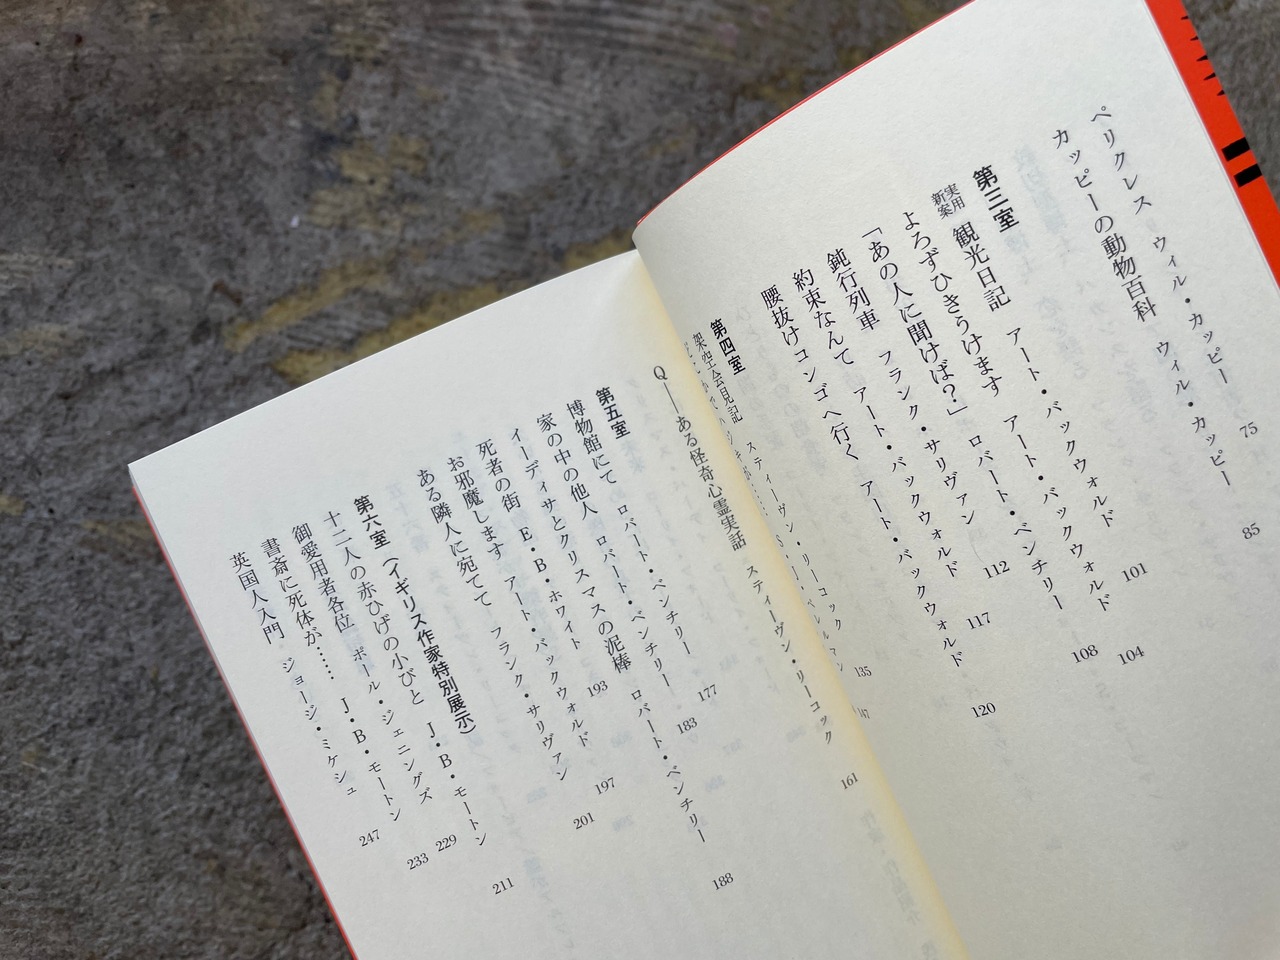 ペリクレス ウィル・カッピー 75
カッピーの動物百科 ウィル・カッピー 85
第三室
実用新案 観光日記 アート・バックウォルド 101
よろずひきうけます アート・バックウォルド 104
「あの人に聞けば?」 ロバート・ベンチリー 108
鈍行列車 フランク・サリヴァン 112
約束なんて アート・バックウォルド 117
腰抜けコンゴへ行く アート・バックウォルド 120
第四室
架空会見記 スティーヴン・リーコック 135
S・J・ペレルマン 147
Q――ある怪奇心霊実話 スティーヴン・リーコック 161
第五室
博物館にて ロバート・ベンチリー 177
家の中の他人 ロバート・ベンチリー 183
イーディサとクリスマスの泥棒 ロバート・ベンチリー 188
死者の街 E・B・ホワイト 193
お邪魔します アート・バックウォルド 197
ある隣人に宛てて フランク・サリヴァン 201
第六室(イギリス作家特別展示)
十二人の赤ひげの小びと J・B・モートン 211
御愛用者各位 ポール・ジェニングズ 229
書斎に死体が…… J・B・モートン 233
英国人入門 ジョージ・ミケシュ 247